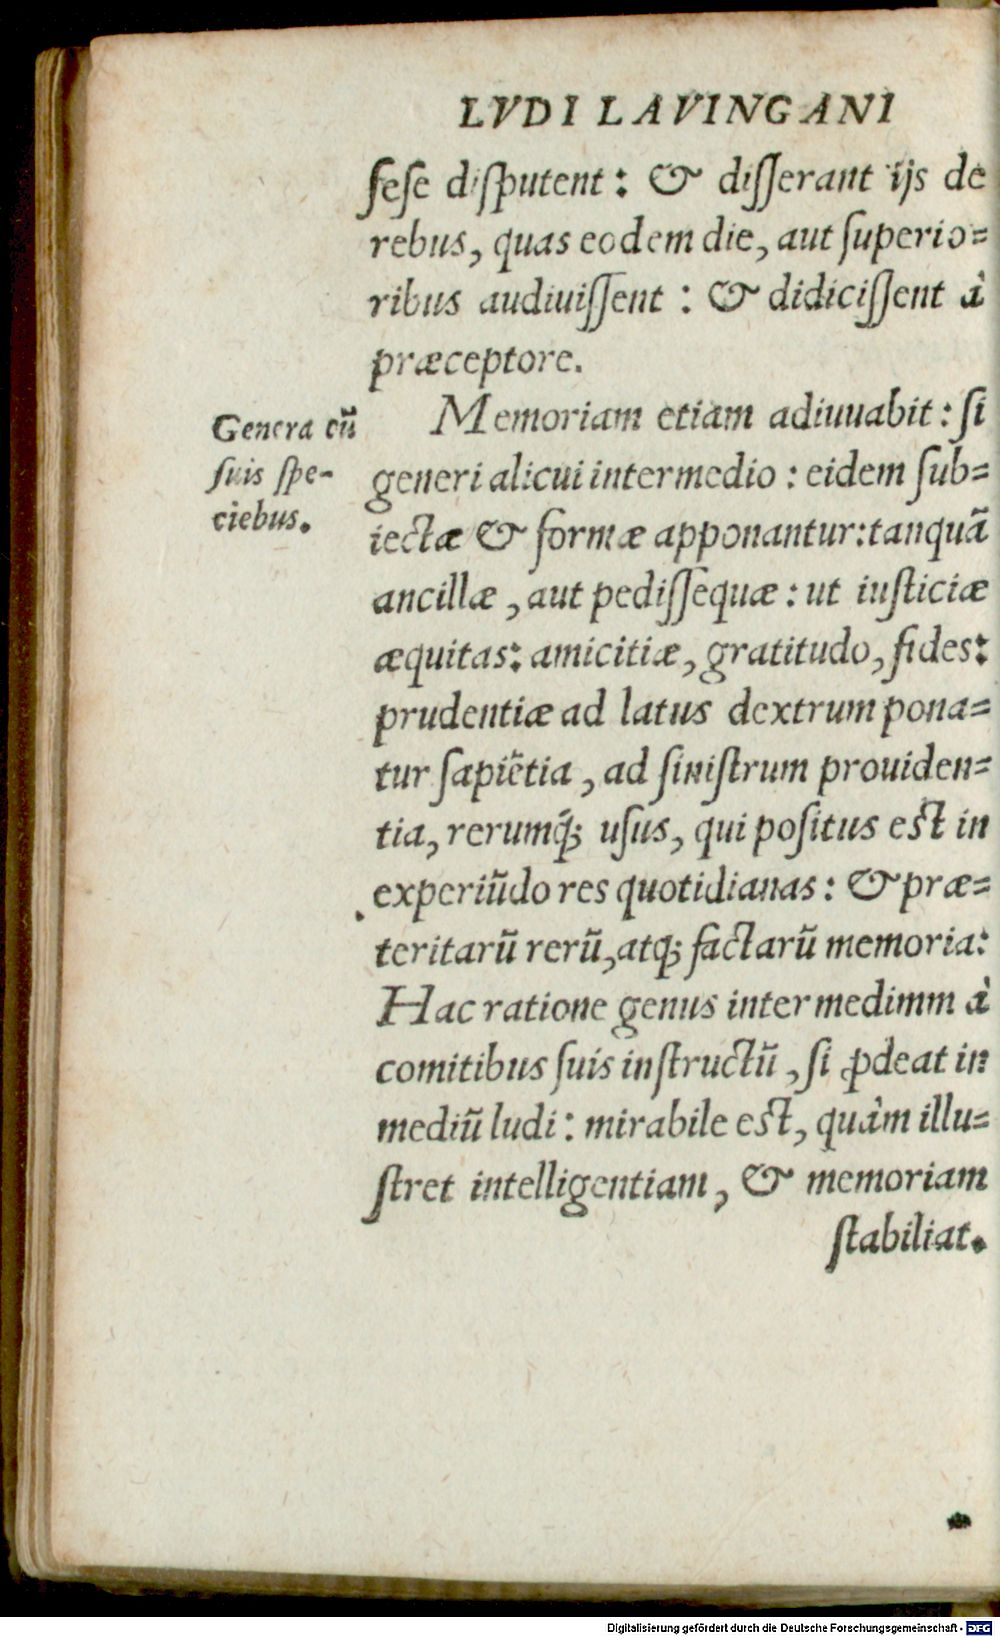 LVDI LAVINGANI
ſeſe diſputent: & diſſerant ijs de
rebus, quas eodem die, aut ſuperio=
ribus audiuiſſent: & didiciſſent à
præceptore.
Genera cũ
ſuis ſpe-
ciebus.
Memoriam etiam adiuuabit: ſi
generi alicui intermedio: eidem ſub=
iectæ & formæ apponantur: tanquã
ancillæ, aut pediſſequæ: ut iuſticiæ
æquitas: amicitiæ, gratitudo, fides:
prudentiæ ad latus dextrum pona=
tur ſapiẽtia, ad ſiniſtrum prouiden=
tia, rerumq́; uſus, qui poſitus eſt in
experiũdo res quotidianas: & præ=
teritarũ rerũ, atq; factarũ memoria:
Hac ratione genus intermedimm à
comitibus ſuis inſtructũ, ſi ꝓdeat in
mediũ ludi: mirabile eſt, quàm illu=
ſtret intelligentiam, & memoriam
ſtabiliat.
Digitalisierung gefördert durch die Deutsche Forschungsgemeinschaft - DFG